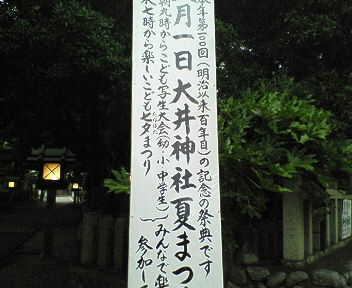 本年第一〇〇回(明治以来百年目)の記念の祭典です
月一日大井神社夏まつ
朝九時からこども写生大会(幼・小・中学生)
七時から楽しいこども七夕まつり
みんなで楽
参加し